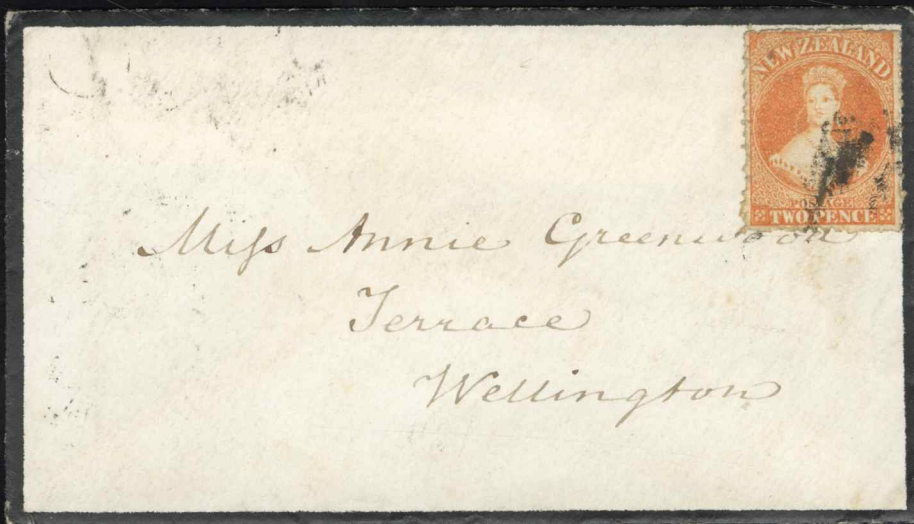 NEW ZEALAND
POSTAGE
TWO PENCE
Miss Annie Greenwood
Terrace
Wellington